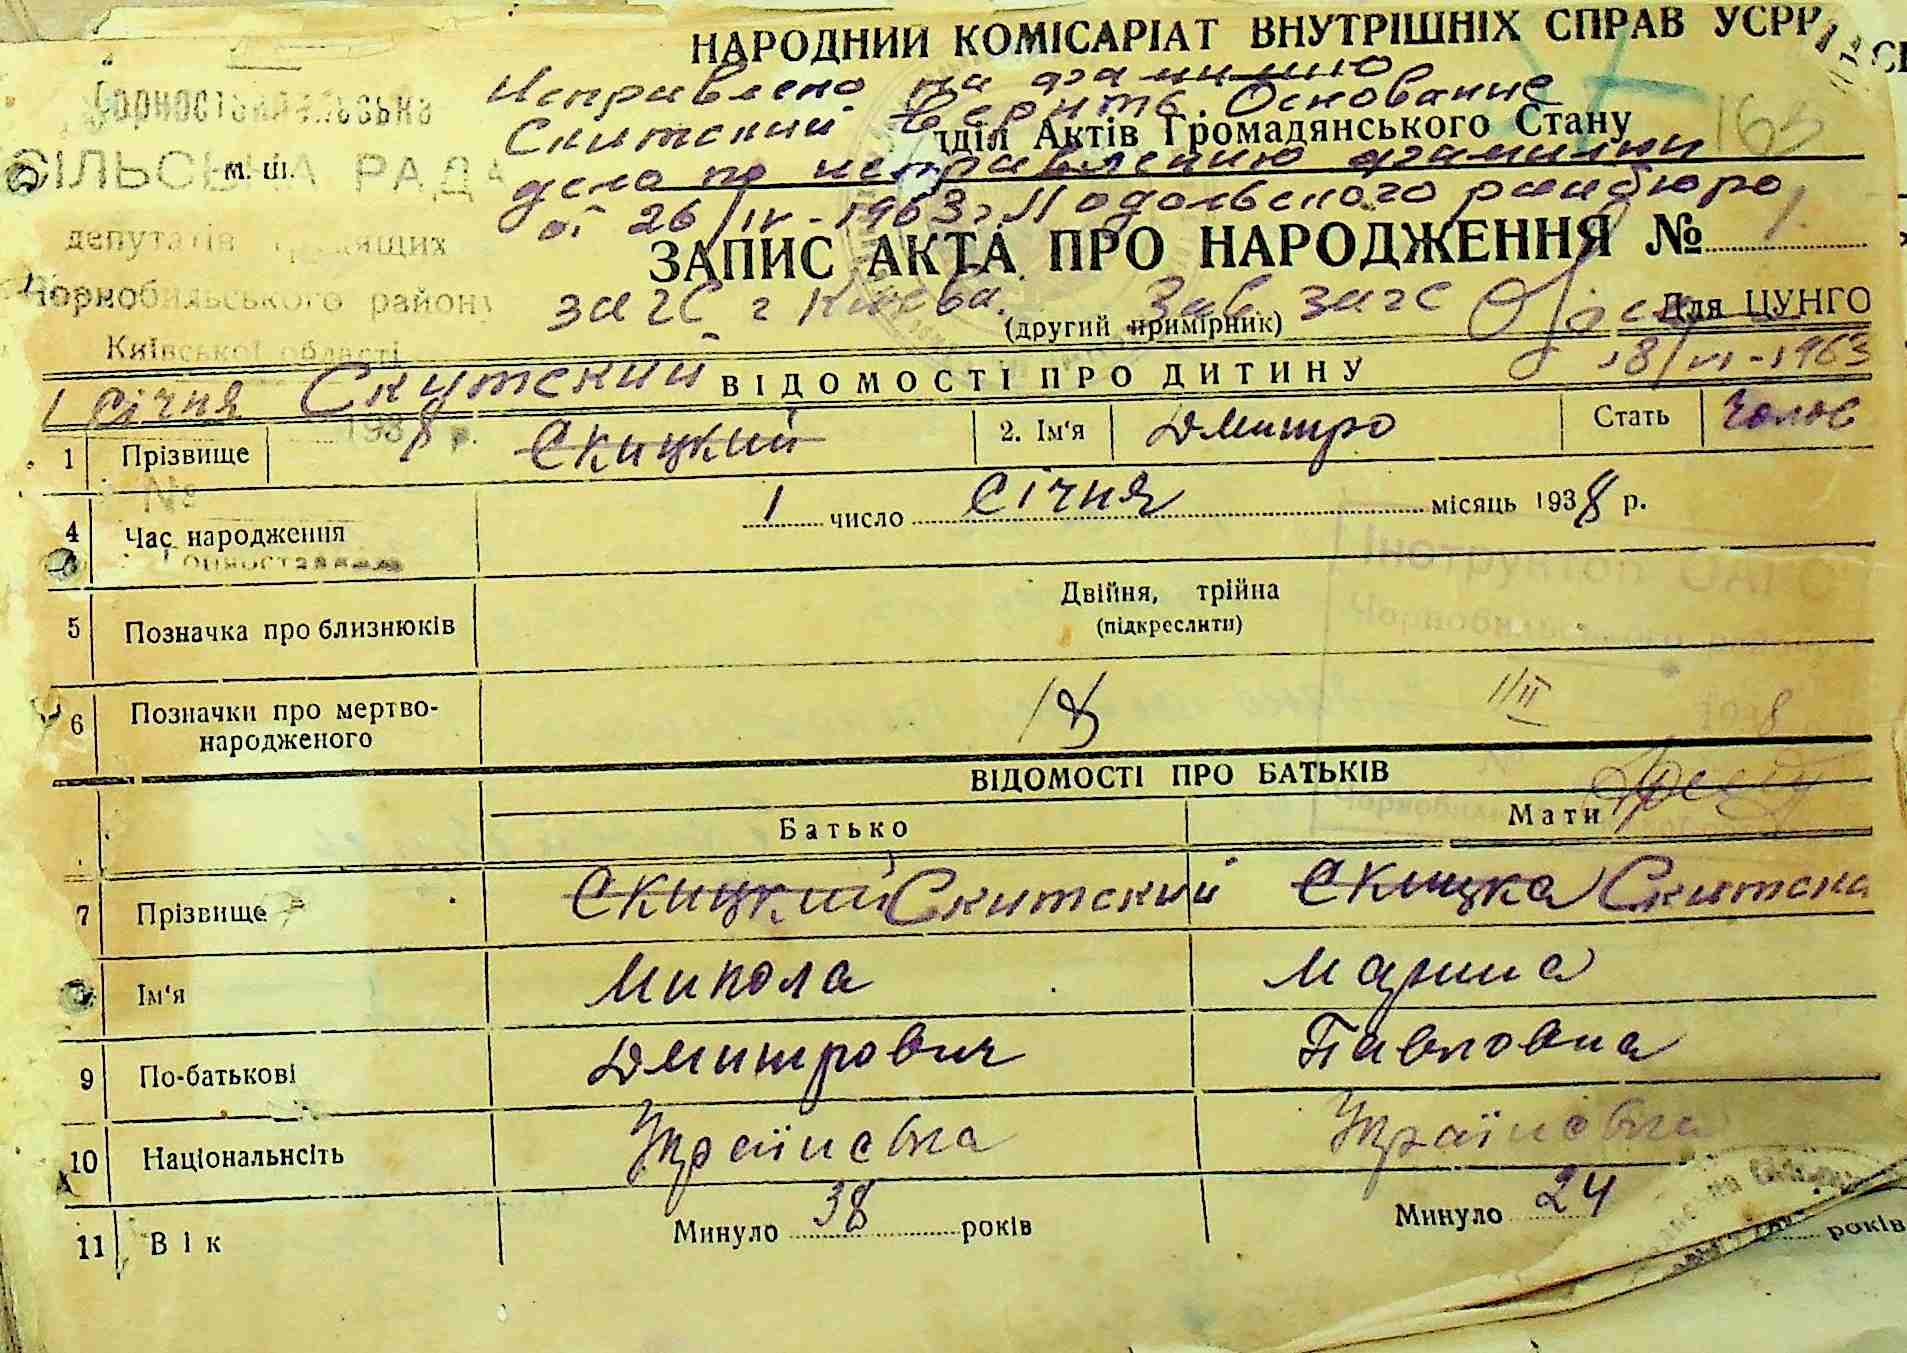 НАРОДНИЙ КОМІСАРІАТ ВНУТРІШНІХ СПРАВ УСРР
Исправлено на фамилию
Скитский верить. Основание
діл Актів Громадянського Стану
163
дело по исправлению фамилии
от 26/IV-1963 г. Подольского райбюро
ЗАПИС АКТА ПРО НАРОДЖЕННЯ № 1.
загс г Киева. Зав. загс
(другий примірник)
Для ЦУНГО
18/VI-1963
Горностайпільська
СІЛЬСЬКА РАДА
м. ш.
депутатів трудящих
Чорнобильського району
Київської області
1 Січня
1938 р.
№
Скутский
ВІДОМОСТІ ПРО ДИТИНУ
1 Прізвище Скицкий 2. Ім'я Дмитро Стать Чолов
4 Час народження 1 число Січня місяць 1938 р.
Інструктор ОАГС
5 Позначка про близнюків Двійня, трійна
(підкреслити)
6 Позначки про мертво-
народженого
18
1/II
1938
ВІДОМОСТІ ПРО БАТЬКІВ
Батько Мати
7 Прізвище Скицкий Скитский Скицка Скитска
Ім'я Микола Марина
9 По-батькові Дмитрович Павловна
10 Національнсіть Українська Українська
11 Вік Минуло 38 років Минуло 24 років